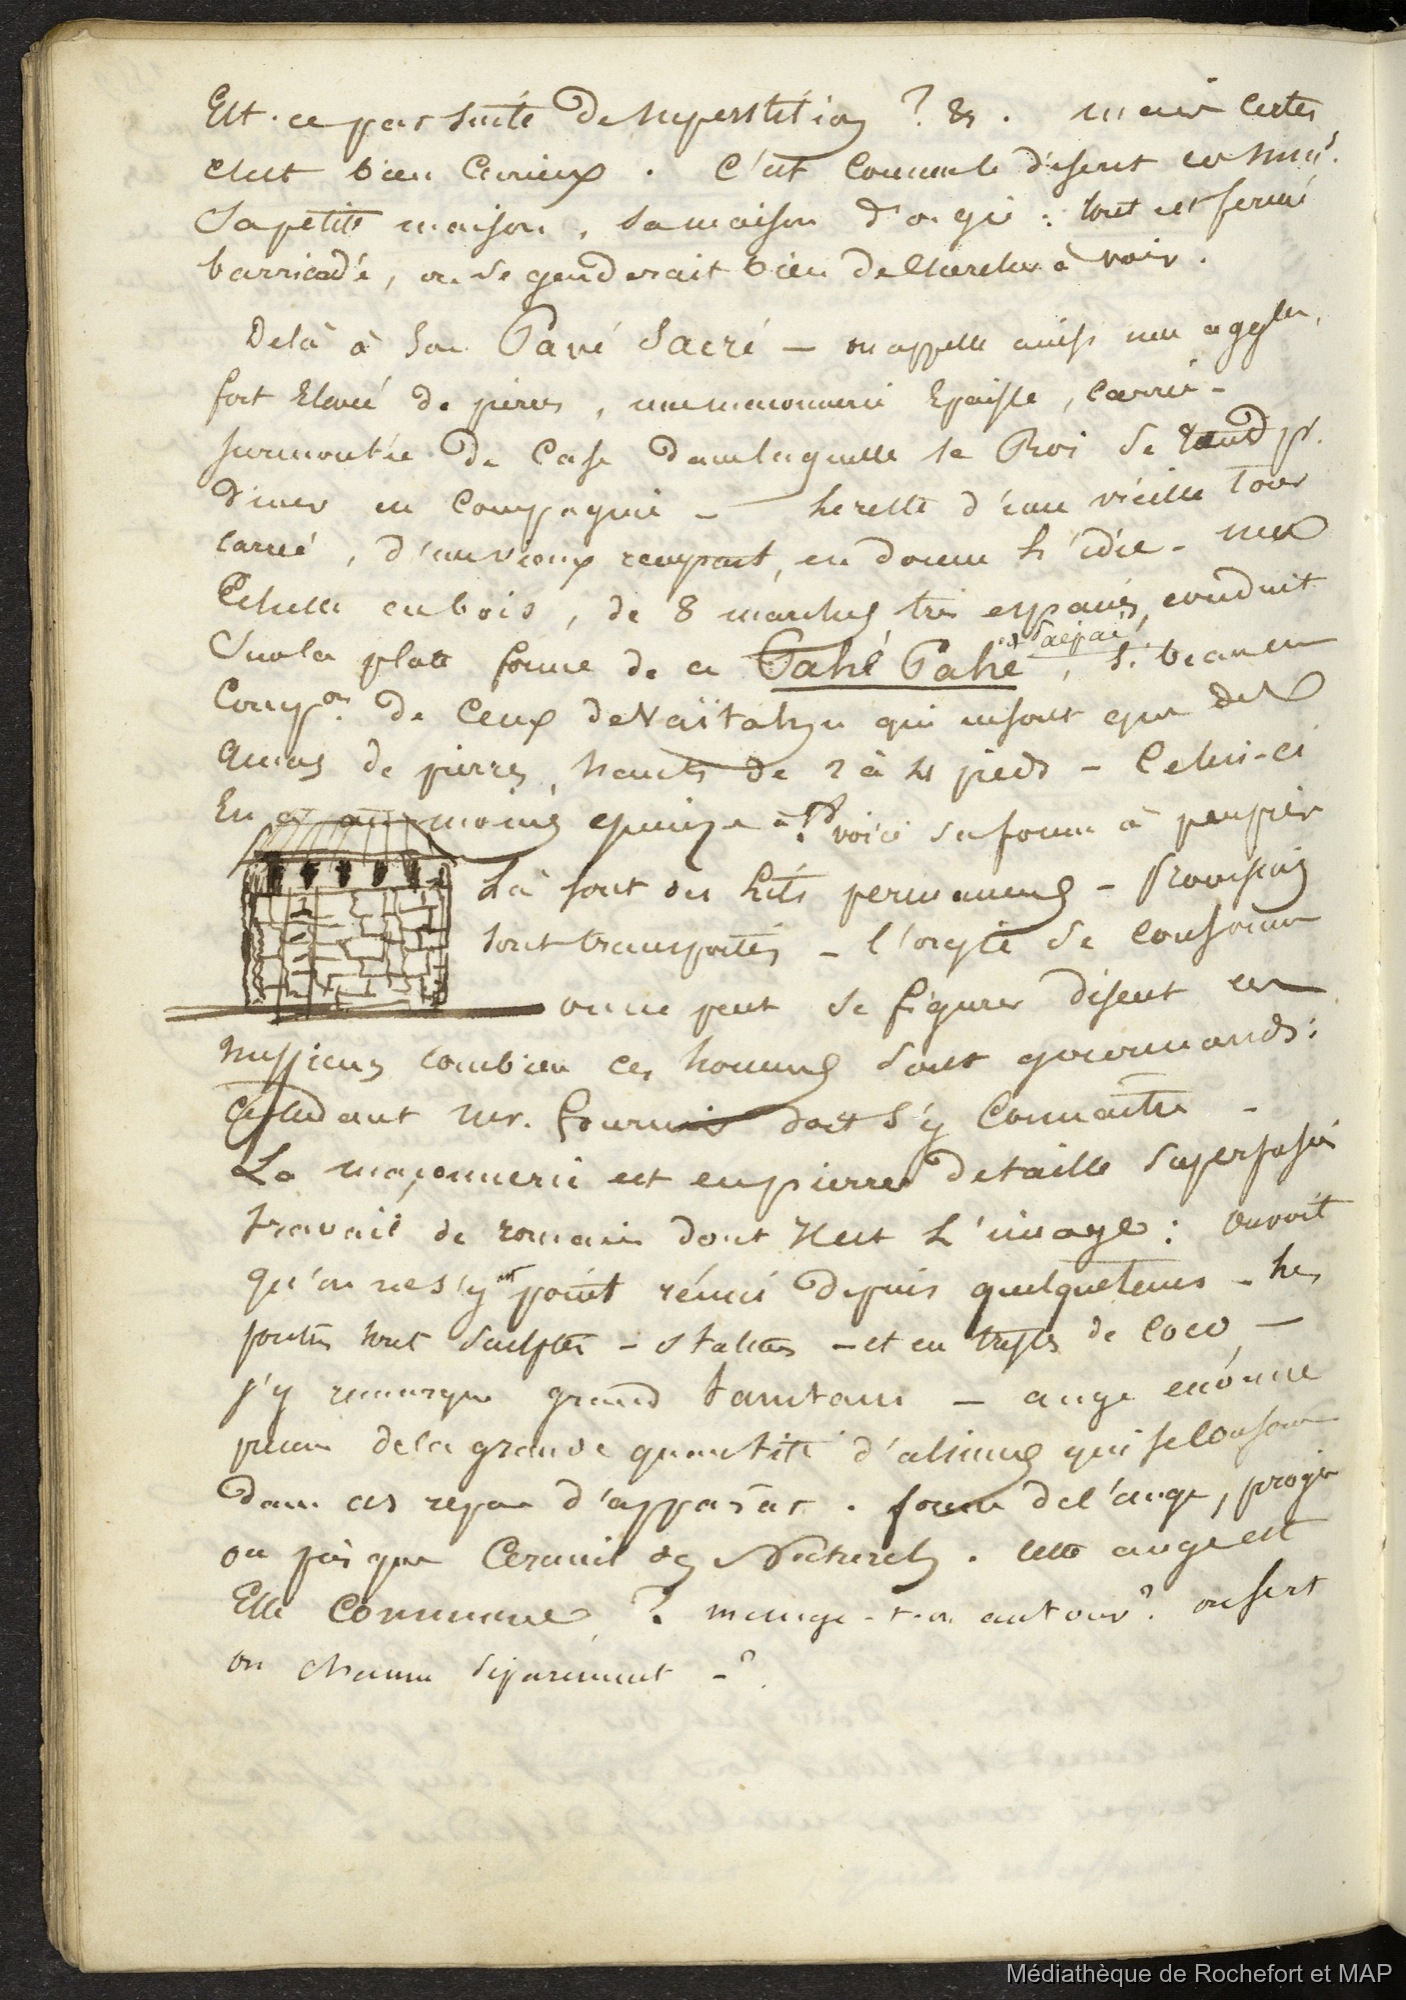 Est-ce par suite de superstition ? &. mais certes
c'est bien curieux. C'est comme le disent ces Miss.
Sa petite maison, sa maison d'orgie : tout est fermé
barricadé, on se garderait bien de chercher à voir.
Delà à son Pavé Sacré — on appelle ainsi une agglon.
fort Elevée de pierres, une maconnerie Epaisse, carrée -
surmontée de Case dans laquelle le Roi se rend pr.
diner en Compagnie - le reste d'une vieille Tour
carrée, d'un vieux rempart, en donne l'idée - une
Echelle en bois, de 8 marches très espacés, conduit
Sur la plate forme de ce Pahé Pahé ou Païpaï, si beau en
Compon. de Ceux de Vaïtahu qui ne sont que de
amas de pierres, hauts de 2 à 4 pieds - Celui-ci
En a au moins quinze à : voici sa forme à peu près
Là sont des lits permanens - Provisions
sont transportés - l'orgie se consomme
on ne peut se figurer disent ces
Messieurs combien ces hommes sont gourmands :
Cependant Mr. Fournier doit s'y Connaitre -
La maçonnerie est en pierres de taille Superposés
travail de romain dont Il est L'image : on voit
qu'on ne s'y est point réuni depuis quelque tems - les
poutres sont sculptés - statues - et en tresses de coco -
j'y remarque grand tamtam - auge enórme
preuve de la grande quantité d'alimens qui se consomme
dans ces repas d'apparat. forme de l'auge, pirogue
ou pis que Cercueil de Nockerely. Cette auge est
Elle Commune ? mange-t-on autour ? on sert
on chacun séparément - ?
Médiathèque de Rochefort et MAP